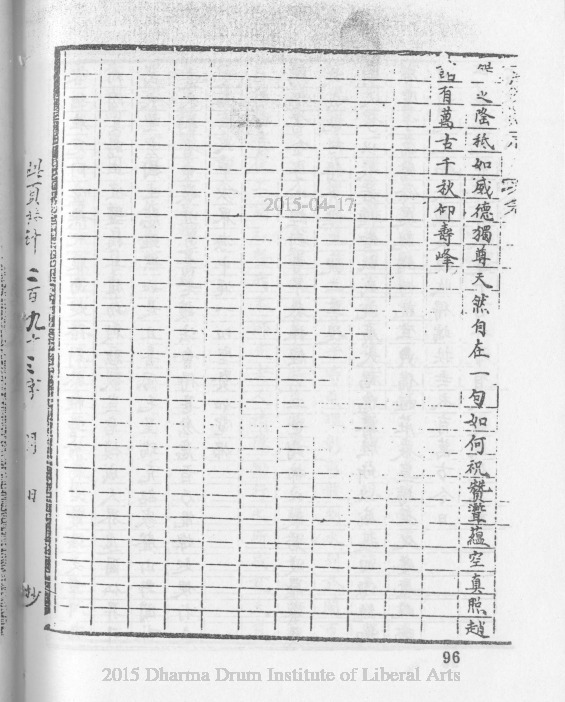 之陰秪如威德獨尊天然自在一句如何祝贊灋蘊空真照越
有萬古千秋仰壽峰
2015-04-17
此頁共計二百九十三字 月 日 抄
96
2015 Dharma Drum Institute of Liberal Arts